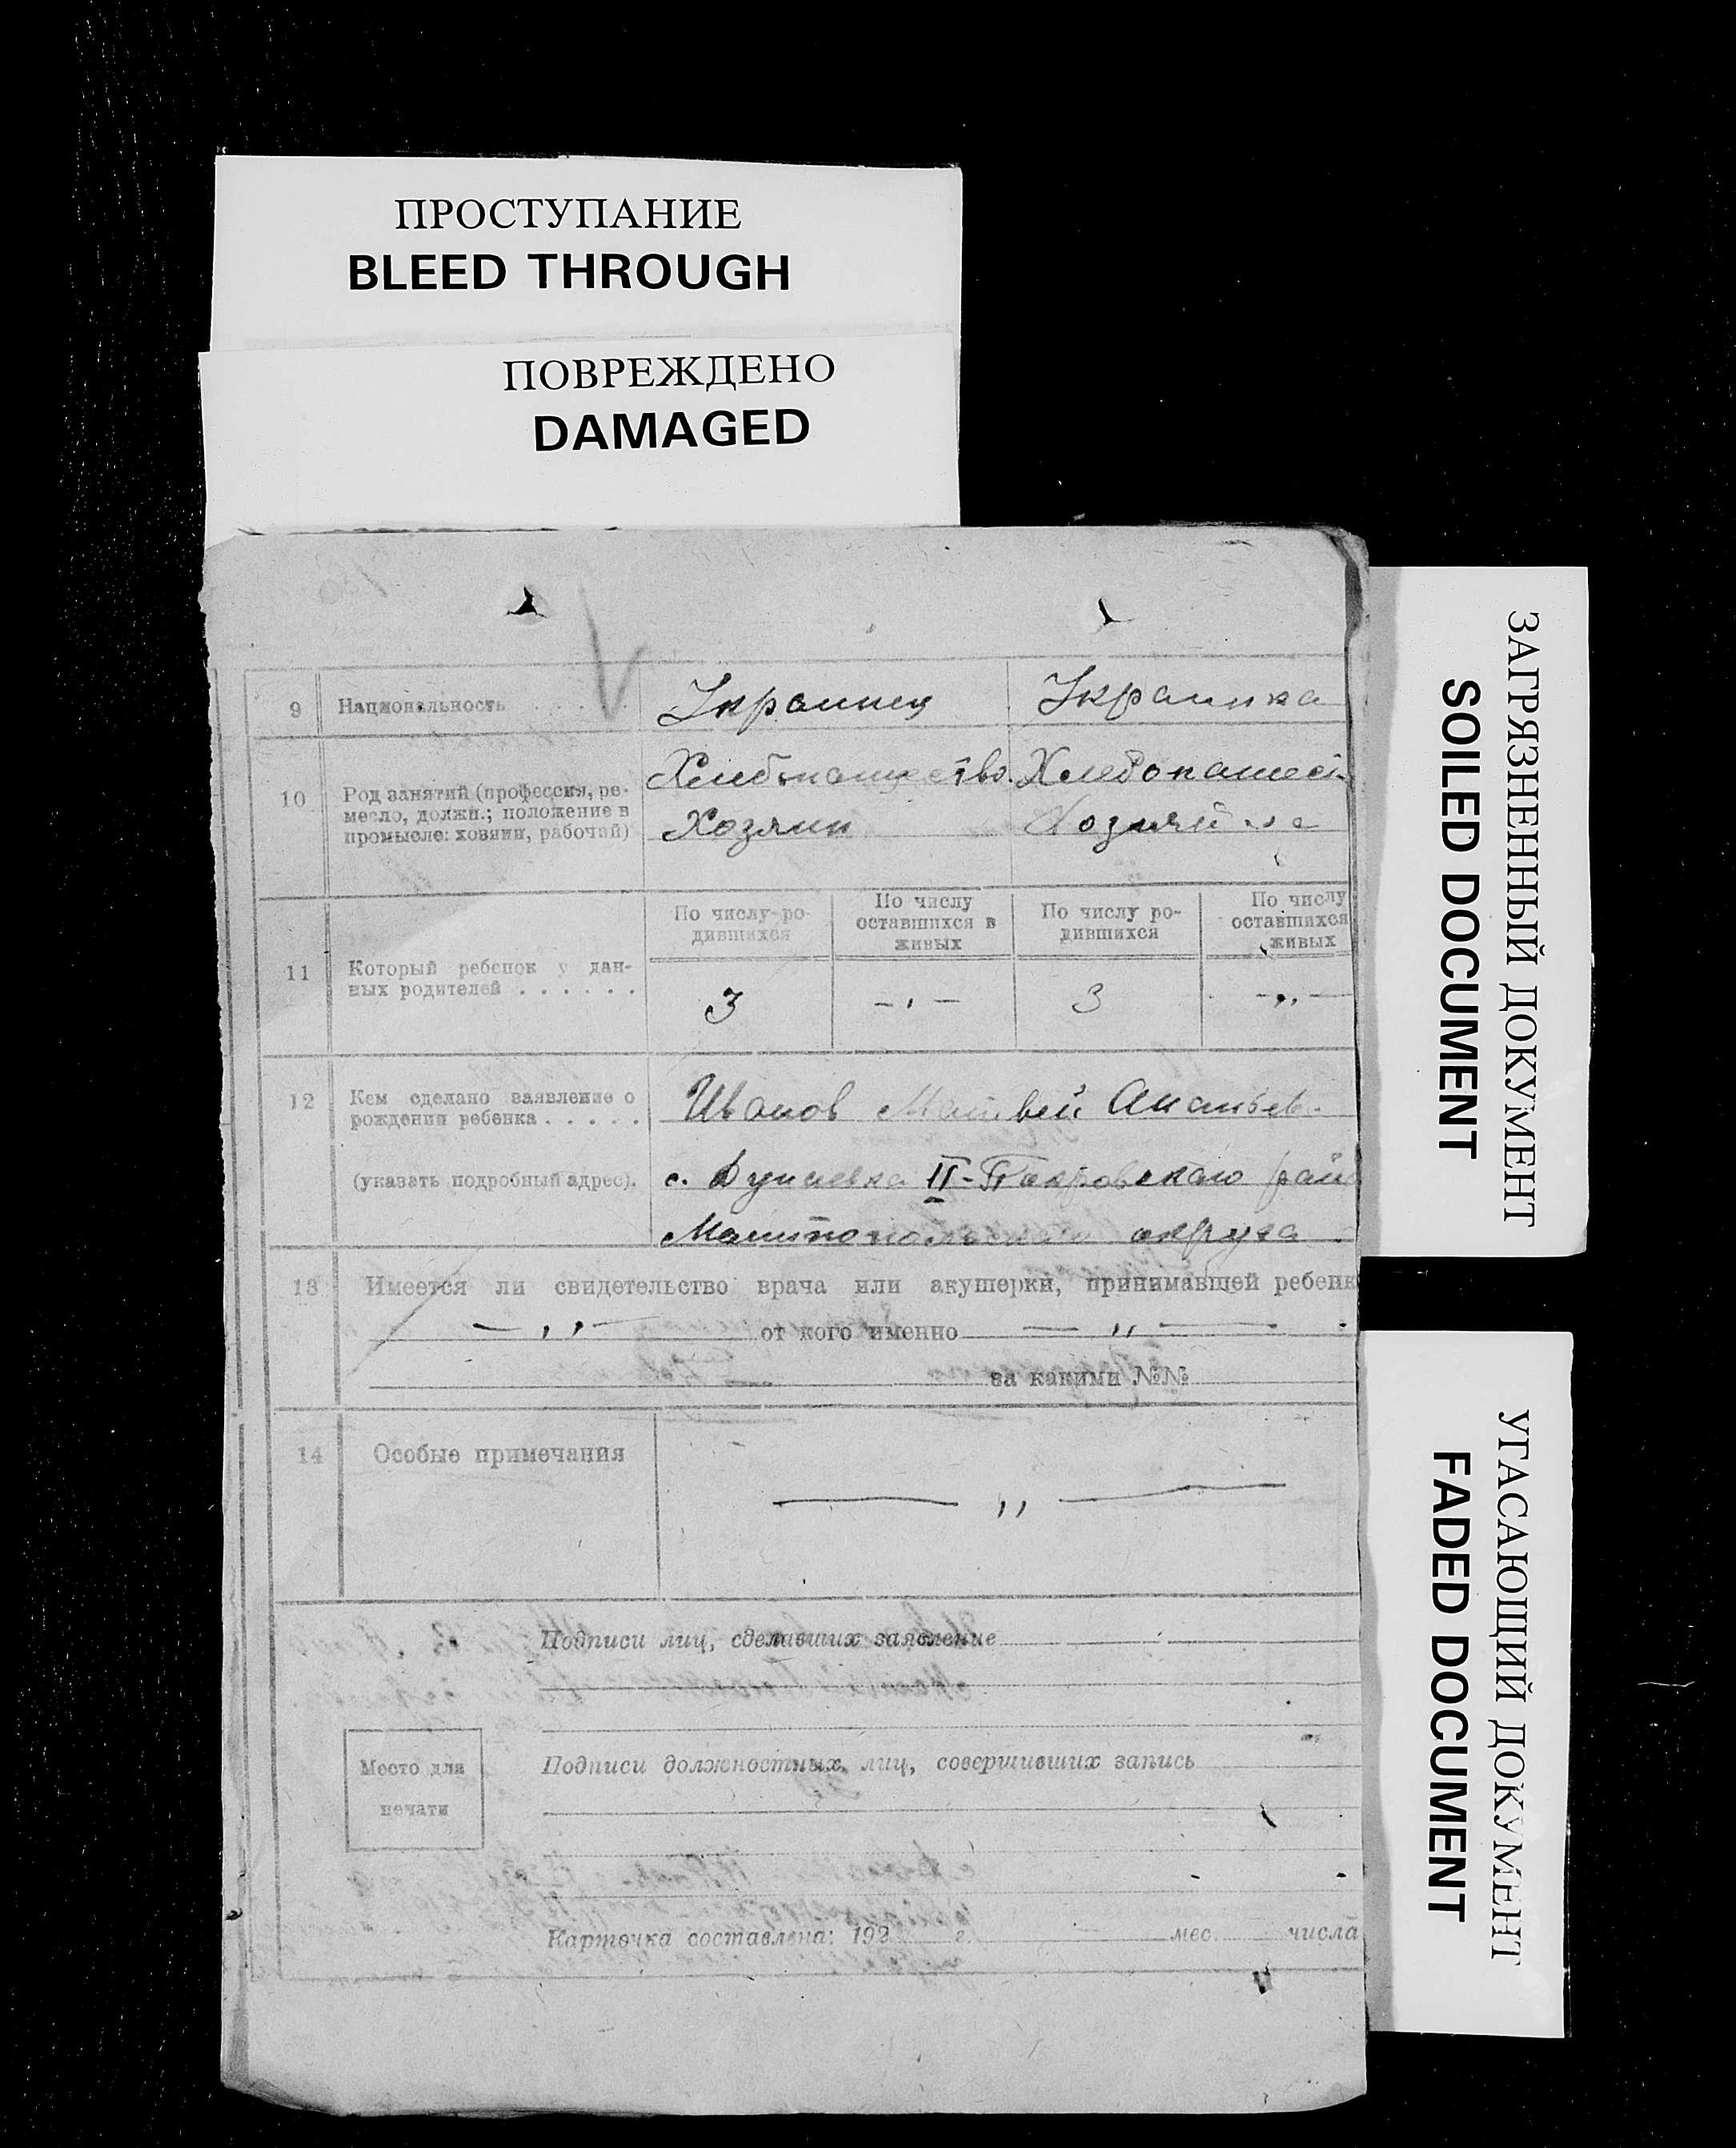 ПРОСТУПАНИЕ
BLEED THROUGH
ПОВРЕЖДЕНО
DAMAGED
ЗАГРЯЗНЕННЫЙ ДОКУМЕНТ
SOILED DOCUMENT
УГАСАЮЩИЙ ДОКУМЕНТ
FADED DOCUMENT
9 Национальность . . . . Украинец Украинка
10 Род занятий (профессия, ре-
месло, должн.; положение в
промысле: хозяин, рабочий)
Хлебопашество. Хлебопашест
Хозяин Хозяйка
11 Который ребенок у дан-
ных родителей . . . . . .
По числу ро-
дившихся
По числу
оставшихся в
живых
По числу ро-
дившихся
По числу
оставшихся
живых
3 - , - 3 - ,, -
12 Кем сделано заявление о
рождении ребенка . . . . .
Иванов Матвей Ананьев.
(указать подробный адрес). с. II-Покровского рай
Мелитопольского округа
13 Имеется ли свидетельство врача или акушерки, принимавшей ребенк
— ,, — от кого именно — ,, —
за какими №№
14 Особые примечания
— ,, —
Подписи лиц, сделавших заявление
Место для
печати
Подписи должностных лиц, совершивших запись
Карточка составлена: 192 г. мес. числа